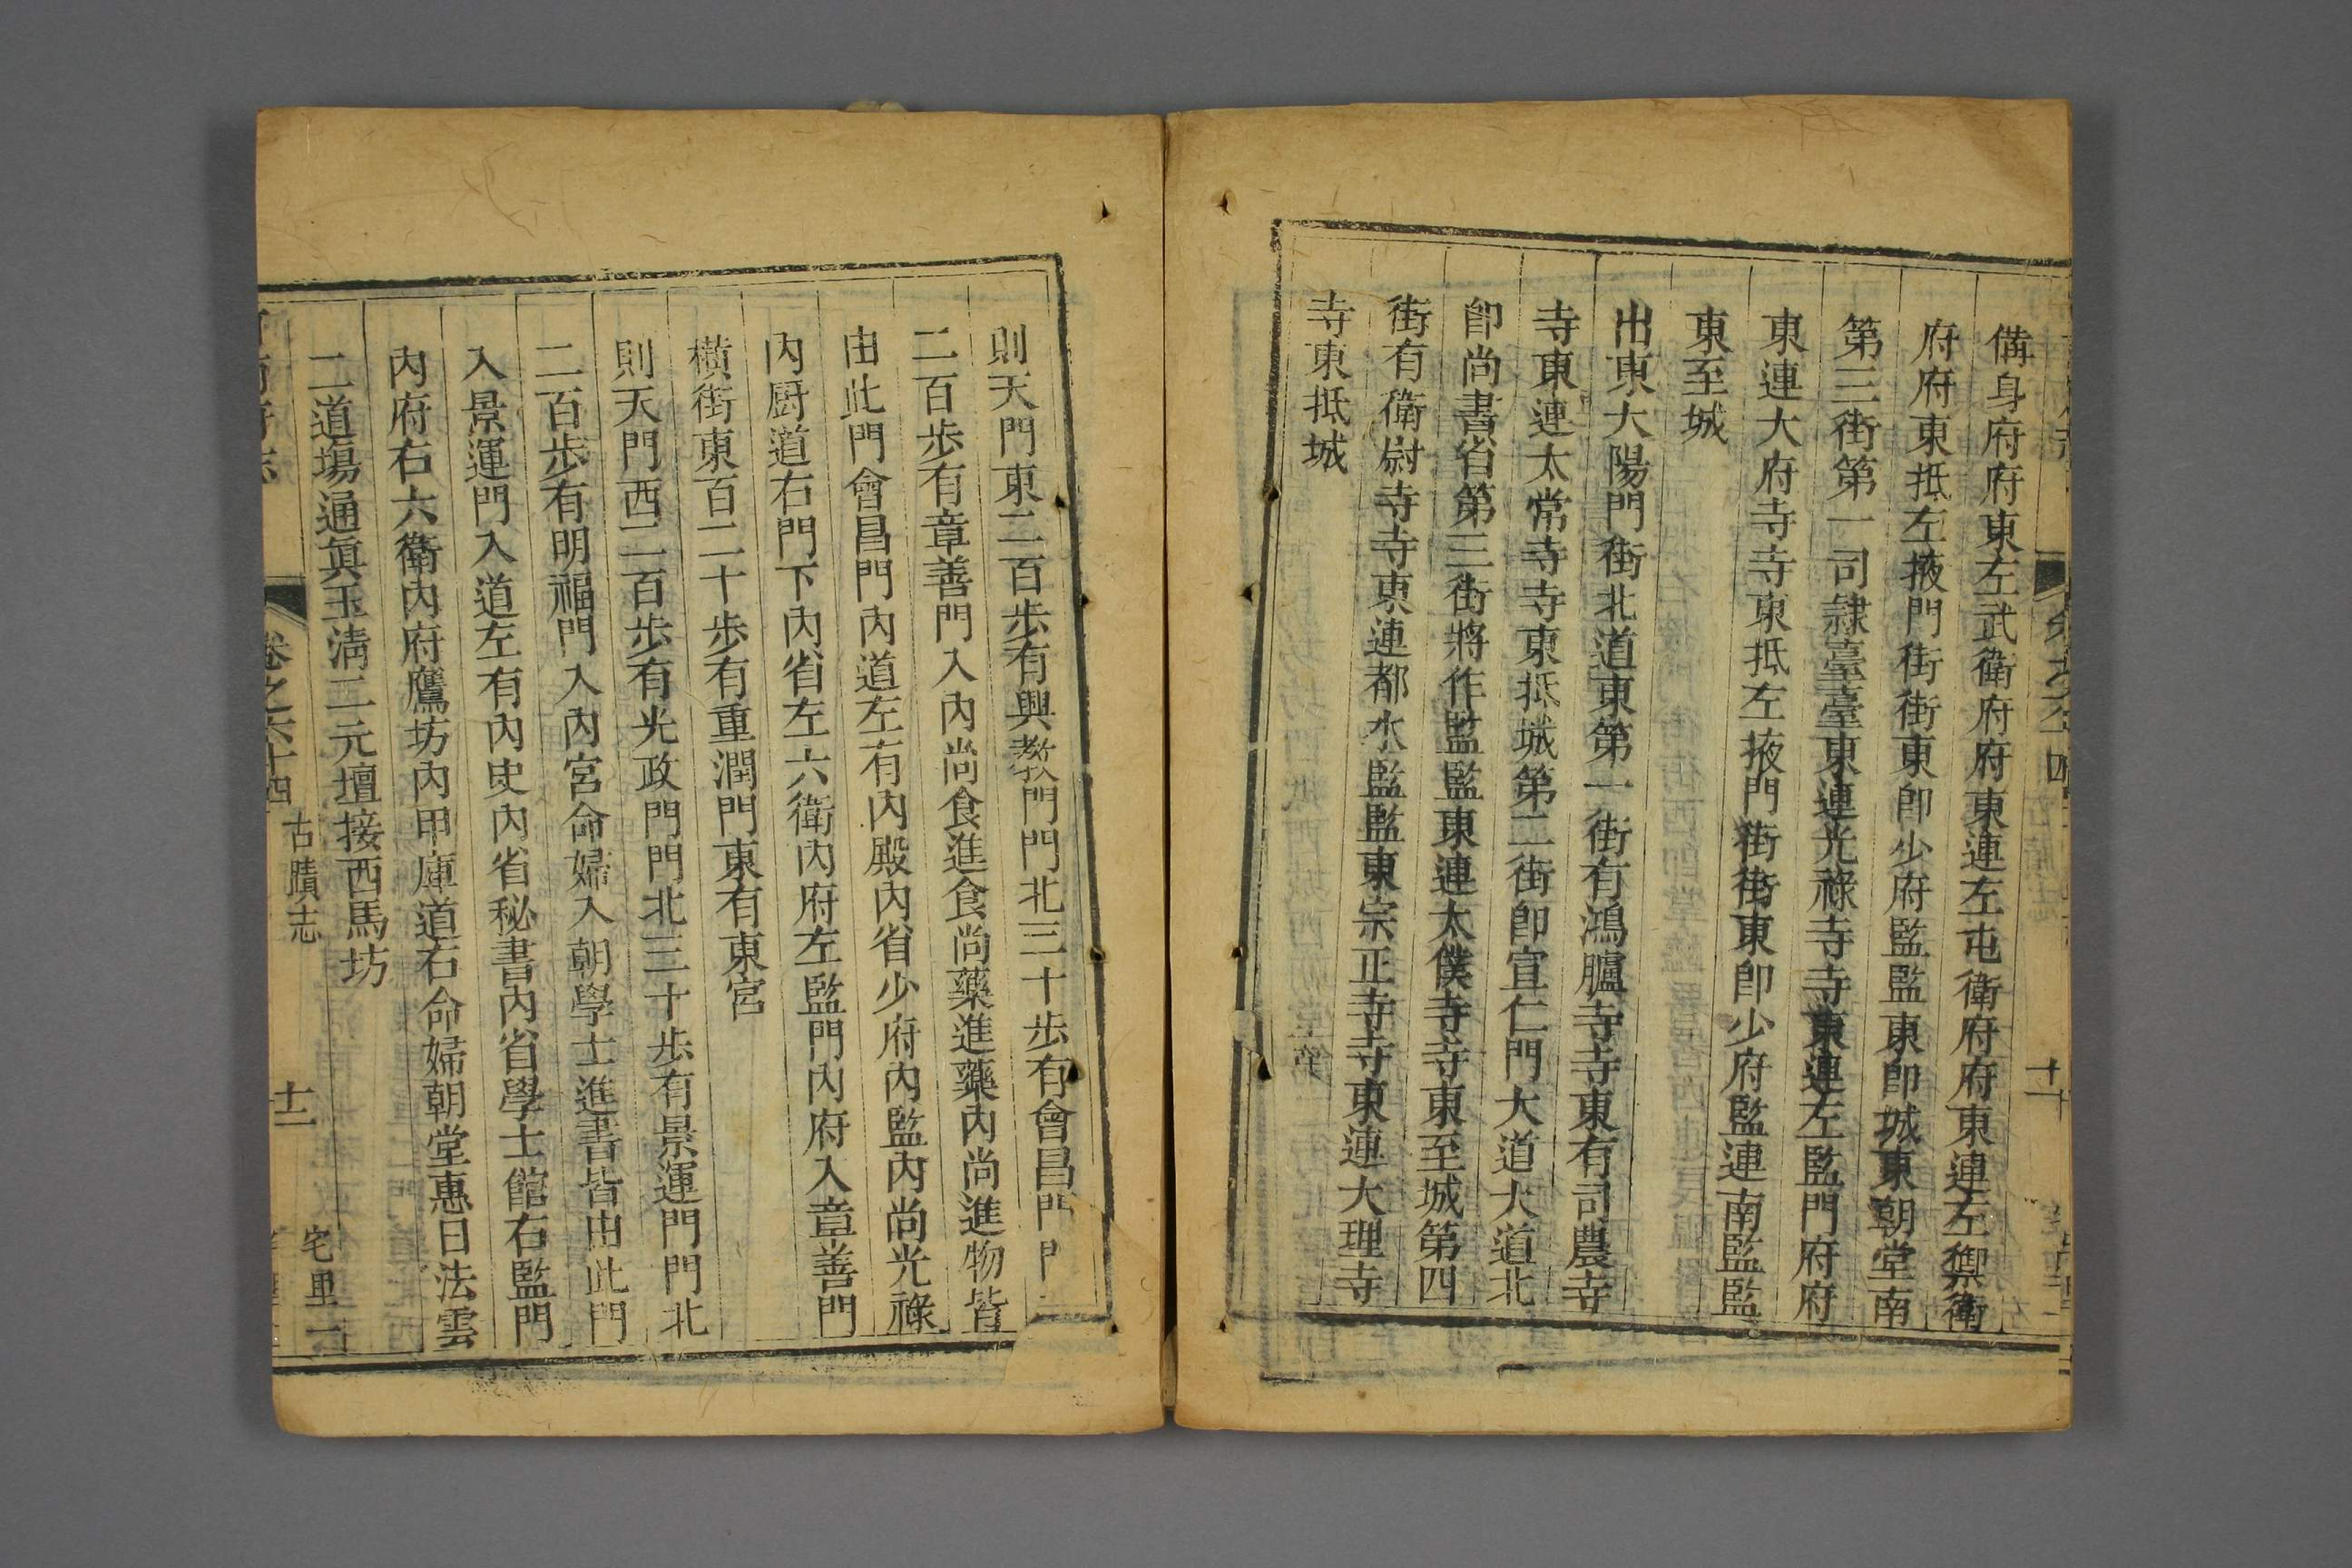 備身府府東左武衛府府東連左屯衛府府東連左禦衛
府府東抵左掖門街街東卽少府監監東卽城東朝堂南
第三街第一司隷臺臺東連光祿寺寺東連左監門府府
東連大府寺寺東抵左掖門街街東卽少府監連南監監
東至城
出東大陽門街北道東第一街有鴻臚寺寺東有司農寺
寺東連太常寺寺東抵城第二街卽宣仁門大道大道北
卽尚書省第三街將作監監東連太僕寺寺東至城第四
街有衛尉寺寺東連都水監監東宗正寺寺東連大理寺
寺東抵城
則天門東二百步有興敎門門北三十步有會昌門門
二百步有章善門入內尚食進食尚藥進藥內尚進物皆
由此門會昌門內道左有內殿內省少府內監內尚光祿
內厨道右門下內省左六衛內府左監門內府入章善門
橫街東百二十步有重潤門東有東宮
則天門西二百步有光政門門北三十步有景運門門北
二百步有明福門入內宮命婦入朝學士進書皆由此門
入景運門入道左有內史內省秘書內省學士館右監門
內府右六衛內府鷹坊內甲庫道右命婦朝堂惠日法雲
二道塲通眞玉淸二元壇接西馬坊
卷之六十四
古蹟志
十二
宅里一